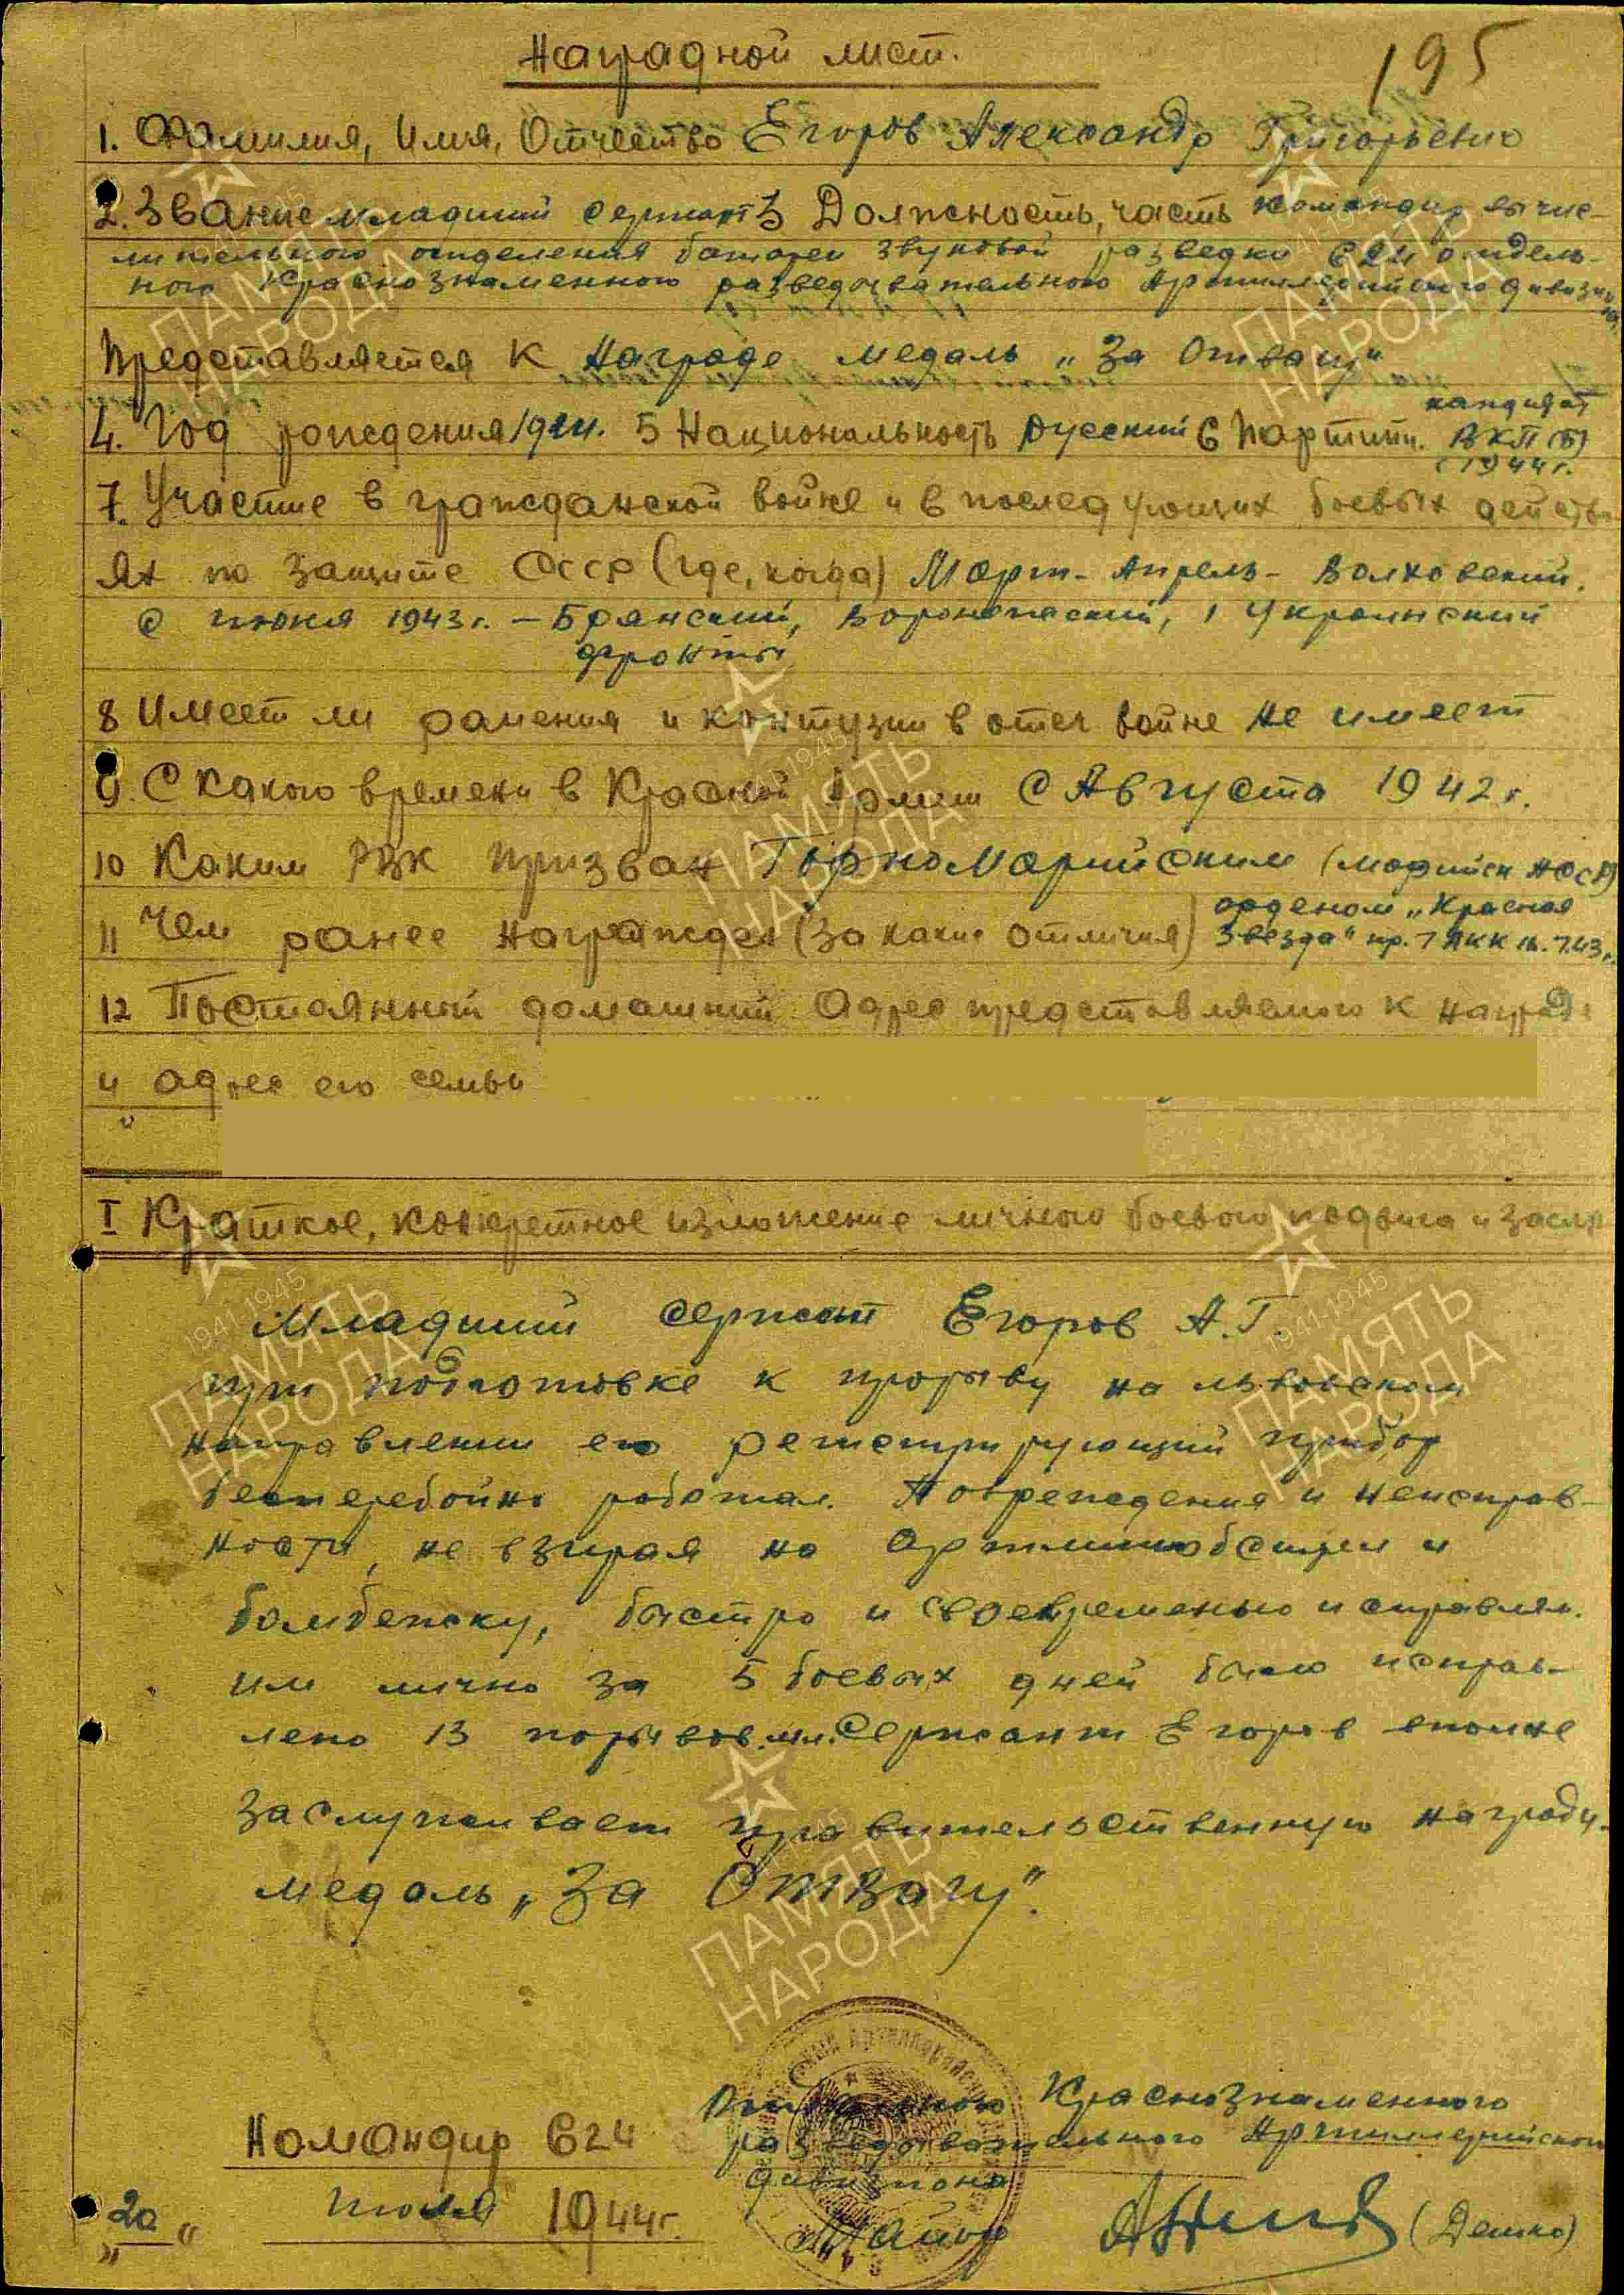 Наградной лист.
195
1. Фамилия, Имя, Отчество Егоров Александр Григорьевич
2. Звание младший сержант 3 Должность, часть командир вычис-
лительного отделения батареи звуковой разведки 624 отдель-
ного Краснознаменного разведывательного Артиллерийского дивизиона
Представляется к Награде медаль „За Отвагу"
кандидат
4. Год рождения 1924. 5 Национальность русский 6 Партийн. ВКП(б)
с 1944 г.
7. Участие в гражданской войне и в последующих боевых действи
ях по защите СССР (где, когда) Март- Апрель- Волховский.
с июня 1943 г. – Брянский, Воронежский, 1 Украинский
фронты
8 Имеет ли ранения и контузии в отеч войне Не имеет
9. С какого времени в Красной Армии С Августа 1942 г.
10 Каким РВК призван Горно Марийским (Марийск АССР)
орденом „Красная
11 Чем ранее награжден (за какие отличия) Звезда" пр. 7 АКК 7.43 г.
12 Постоянный домашний Адрес представляемого к награде
и адрес его семьи
I Краткое, конкретное изложение личного боевого подвига и заслуг
Младший сержант Егоров А.Г.
при подготовке к прорыву на львовском
направлении его регистрирующий прибор
бесперебойно работал. Повреждения и неисправ-
ности, не взирая на Артминобстрел и
бомбежку, быстро и своевременно исправлял.
им лично за 5 боевых дней было исправ-
лено 13 порывов. мл. Сержант Егоров вполне
заслуживает правительственную награду.
медаль „За Отвагу".
Командир 624 Отдельного Краснознаменного
разведывательного Артиллерийского
дивизиона
„20" июля 1944 г. Майор (Дешко)
ПАМЯТЬ НАРОДА
1941-1945